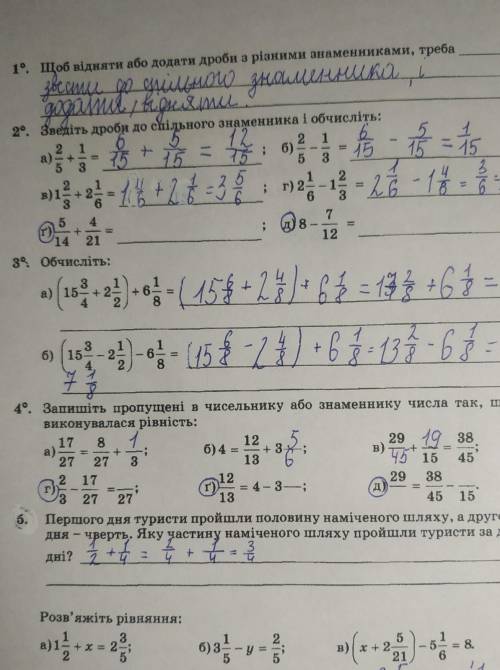 1°. Щоб відняти або додати дроби з різними знаменниками, треба
звести до спільного знаменника, і
додати/відняти.
2°. Зведіть дроби до спільного знаменника і обчисліть:
а) 2/5 + 1/3 = 6/15 + 5/15 = 12/15 ; б) 2/5 − 1/3 = 6/15 − 5/15 = 1/15
в) 1 2/3 + 2 1/6 = 1 4/6 + 2 1/6 = 3 5/6 ; г) 2 1/6 − 1 2/3 = 2 1/6 − 1 4/6 = 3/6 =
ґ) 5/14 + 4/21 = ; д) 8 − 7/12 =
3°. Обчисліть:
а) (15 3/4 + 2 1/2) + 6 1/8 = (15 6/8 + 2 4/8) + 6 1/8 = 17 2/8 + 6 1/8 =
б) (15 3/4 − 2 1/2) − 6 1/8 = (15 6/8 − 2 4/8) + 6 1/8 = 13 2/8 − 6 1/8 =
7 1/8
4°. Запишіть пропущені в чисельнику або знаменнику числа так, щ
виконувалася рівність:
а) 17/27 = 8/27 + 1/3; б) 4 = 12/13 + 3 5/6; в) 29/45 + 19/15 = 38/45;
г) 2/3 − 17/27 = /27; ґ) 12/13 = 4 − 3 —; д) 29/ = 38/45 − /15.
5. Першого дня туристи пройшли половину наміченого шляху, а друго
дня – чверть. Яку частину наміченого шляху пройшли туристи за д
дні? 1/2 + 1/4 = 2/4 + 1/4 = 3/4
Розв'яжіть рівняння:
а) 1 1/2 + x = 2 3/5; б) 3 1/5 − y = 2/5; в) (x + 2 5/21) − 5 1/6 = 8.